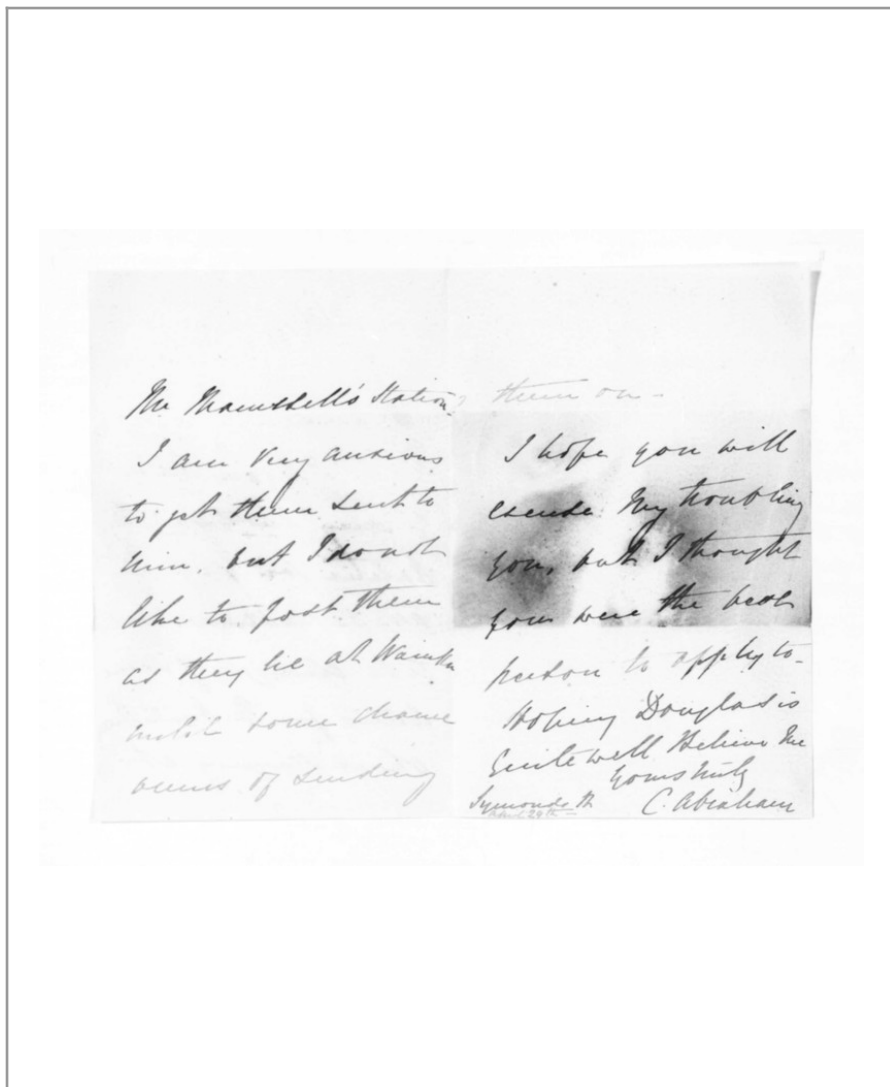 Mr Maunsell's Station,
I am very anxious
to get them sent to
him, but I do not
like to post them
as they lie at
until some chance
occurs of sending
them on -
I hope you will
excuse my troubling
you, but I thought
you were the best
person to apply to -
Hoping Douglas is
quite well Believe me
Yours truly
C. Abraham
Symonds St
April 29th -